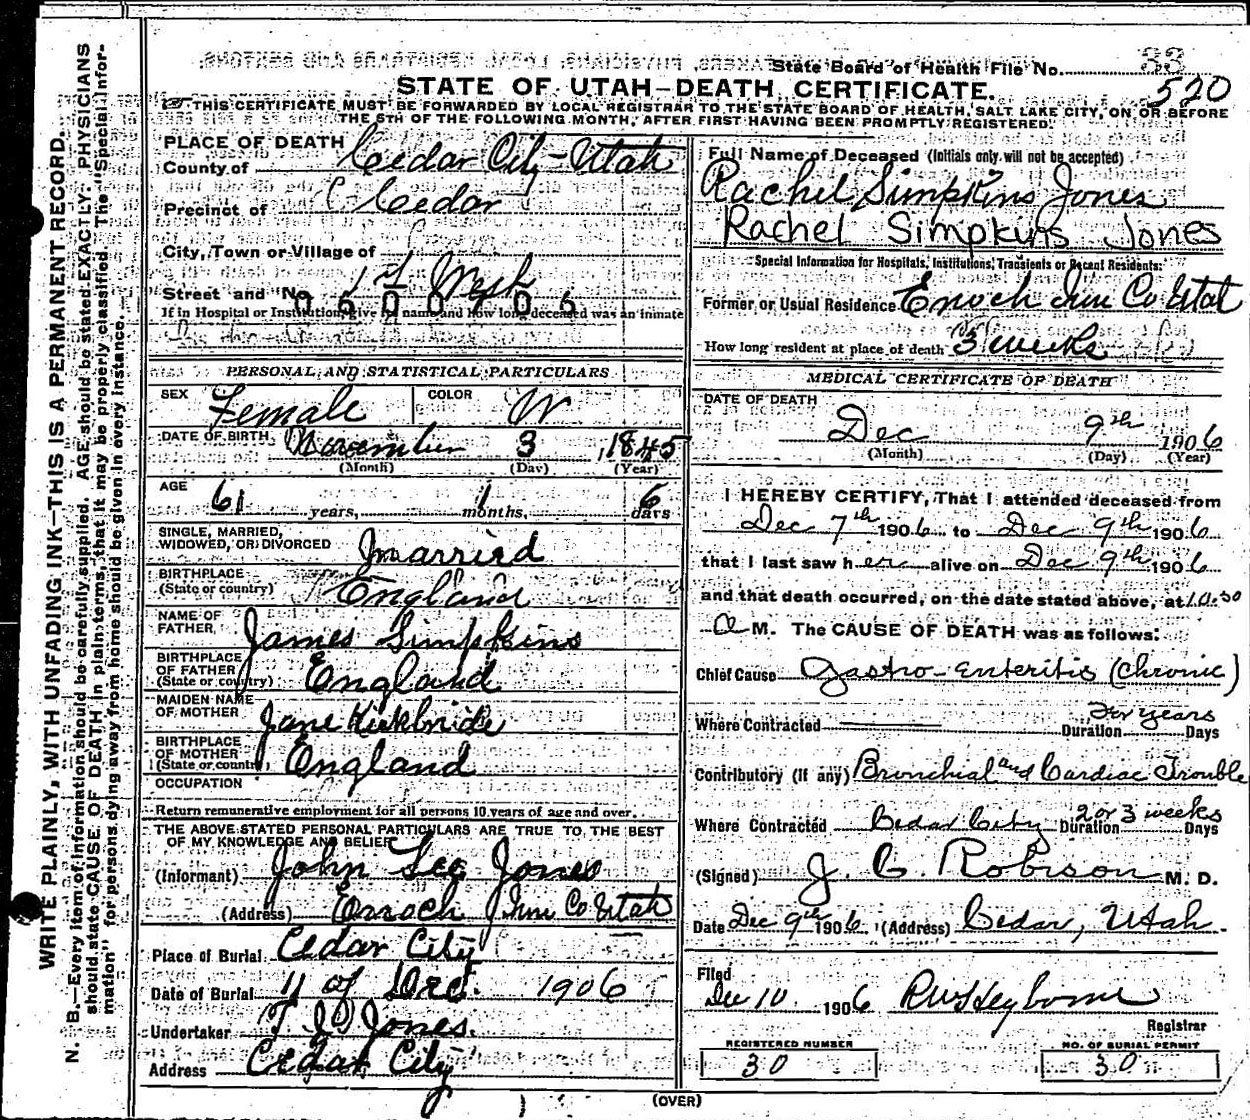 WRITE PLAINLY, WITH UNFADING INK—THIS IS A PERMANENT RECORD.
N. B.—Every item of information should be carefully supplied. AGE should be stated EXACTLY. PHYSICIANS
should state CAUSE OF DEATH in plain terms, that it may be properly classified. The "Special Infor-
mation" for persons dying away from home should be given in every instance.
State Board of Health File No. 33
520
STATE OF UTAH—DEATH CERTIFICATE.
THIS CERTIFICATE MUST BE FORWARDED BY LOCAL REGISTRAR TO THE STATE BOARD OF HEALTH, SALT LAKE CITY, ON OR BEFORE
THE 5TH OF THE FOLLOWING MONTH, AFTER FIRST HAVING BEEN PROMPTLY REGISTERED.
PLACE OF DEATH
County of Cedar City - Utah
Precinct of Cedar
City, Town or Village of
Street and No. West
0 6 0 0 0 6
If in Hospital or Institution, give its name and how long deceased was an inmate
PERSONAL AND STATISTICAL PARTICULARS
SEX Female COLOR W
DATE OF BIRTH November 3, 1845
(Month) (Day) (Year)
AGE 61 years, 1 months, 6 days
SINGLE, MARRIED, WIDOWED, OR DIVORCED Married
BIRTHPLACE (State or country) England
NAME OF FATHER James Simpkins
BIRTHPLACE OF FATHER (State or country) England
MAIDEN NAME OF MOTHER Jane Kirkbride
BIRTHPLACE OF MOTHER (State or country) England
OCCUPATION
Return remunerative employment for all persons 10 years of age and over.
THE ABOVE STATED PERSONAL PARTICULARS ARE TRUE TO THE BEST
OF MY KNOWLEDGE AND BELIEF
(Informant) John Lee Jones
(Address) Enoch Irn Co Utah
Place of Burial Cedar City
Date of Burial 11 of Dec. 1906
Undertaker T J Jones.
Address Cedar City
Full Name of Deceased (Initials only will not be accepted)
Rachel Simpkins Jones
Rachel Simpkins Jones
Special Information for Hospitals, Institutions, Transients or Recent Residents:
Former or Usual Residence Enoch Irn Co Utat
How long resident at place of death 3 weeks
MEDICAL CERTIFICATE OF DEATH
DATE OF DEATH
Dec 9th 1906
(Month) (Day) (Year)
I HEREBY CERTIFY, That I attended deceased from
Dec 7th 1906 to Dec 9th 1906
that I last saw her alive on Dec 9th 1906
and that death occurred, on the date stated above, at 10.30
a M. The CAUSE OF DEATH was as follows:
Chief Cause Gastro-Enteritis (Chronic)
Where Contracted for years Duration Days
Contributory (If any) Bronchial and Cardiac Trouble
Where Contracted Cedar City Duration 2 or 3 weeks Days
(Signed) J. C. Robison M. D.
Date Dec 9th 1906 (Address) Cedar, Utah.
Filed
Dec 10 1906
Registrar
REGISTERED NUMBER
30
NO. OF BURIAL PERMIT
30
(OVER)